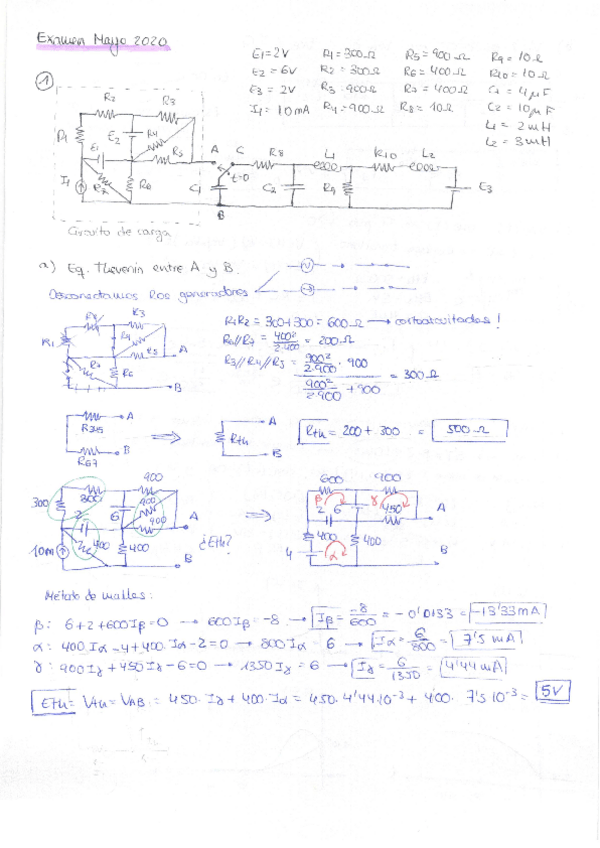 Examen Mayo 2020
E1=2V R1=300Ω R5=900Ω R9=10Ω
E2=6V R2=300Ω R6=400Ω R10=10Ω
E3=2V R3=900Ω R7=400Ω C1=4μF
I1=10mA R4=900Ω R8=10Ω C2=10μF
L1=2mH
L2=3mH
①
R2 R3
R1 E2 R4
E1 R5 A C R8 L1 R10 L2
I1 R7 R6 C1 t=0 C2 R9 E3
B
Circuito de carga
a) Eq. Thevenin entre A y B.
Desconectamos los generadores
R2 R3
R1 R4 R5 A
R7 R6 B
R1R2 = 300+300 = 600Ω → cortocircuitadas!
R6//R7 = 400²/2·400 = 200Ω
R3//R4//R5 = (900²/2·900 · 900)/(900²/2·900 + 900) = 300Ω
R345 A
R67 B
⇒ Rth A B
Rth = 200+300 = 500Ω
300 300 900
2 6 900 900 A
10m 400 400 B
¿Eth?
⇒
600 900
β 2 6 γ 450 A
400 400
4 α B
Método de mallas:
β: 6+2+600Iβ=0 → 600Iβ=-8 → Iβ = -8/600 = -0'0133 = -13'33mA
α: 400Iα-4+400·Iα-2=0 → 800Iα=6 → Iα=6/800 = 7'5 mA
γ: 900Iγ+450Iγ-6=0 → 1350Iγ=6 → Iγ=6/1350 = 4'44mA
Eth = Vth = VAB = 450·Iγ+400·Iα = 450·4'44·10⁻³ + 400·7'5·10⁻³ = 5V